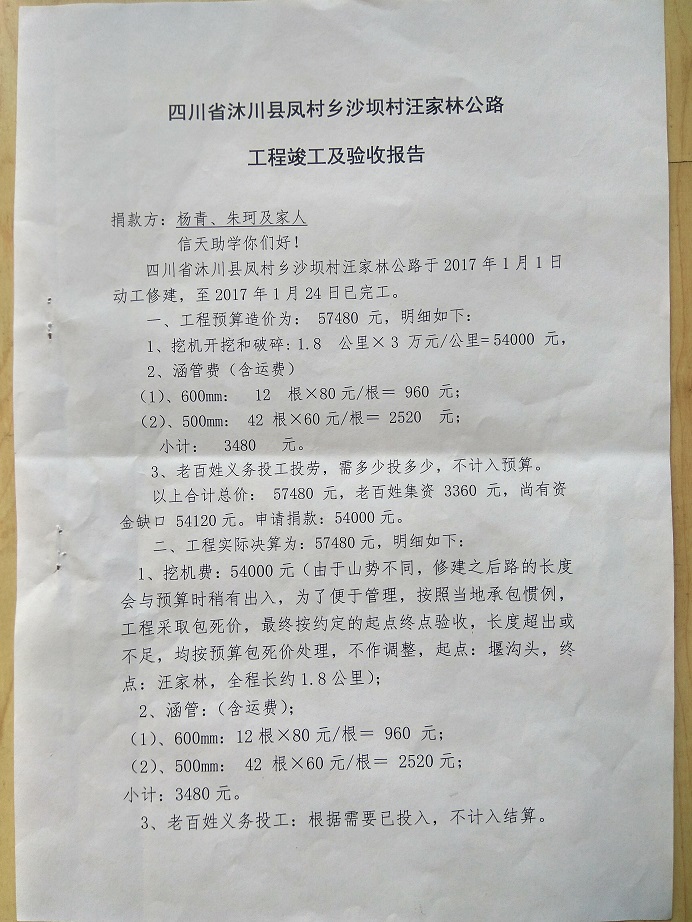 四川省沐川县凤村乡沙坝村汪家林公路
工程竣工及验收报告
捐款方：杨青、朱珂及家人
信天助学你们好！
四川省沐川县凤村乡沙坝村汪家林公路于2017年1月1日
动工修建，至2017年1月24日已完工。
一、工程预算造价为： 57480 元，明细如下：
1、挖机开挖和破碎：1.8 公里×3 万元/公里=54000 元，
2、涵管费（含运费）
（1）、600mm： 12 根×80元/根＝ 960 元；
（2）、500mm： 42 根×60元/根＝ 2520 元；
小计： 3480 元。
3、老百姓义务投工投劳，需多少投多少，不计入预算。
以上合计总价： 57480 元，老百姓集资 3360 元，尚有资
金缺口 54120元。申请捐款：54000元。
二、工程实际决算为：57480元，明细如下：
1、挖机费：54000元（由于山势不同，修建之后路的长度
会与预算时稍有出入，为了便于管理，按照当地承包惯例，
工程采取包死价，最终按约定的起点终点验收，长度超出或
不足，均按预算包死价处理，不作调整，起点：堰沟头，终
点：汪家林，全程长约1.8公里）；
2、涵管：（含运费）；
（1）、600mm：12根×80元/根＝ 960 元；
（2）、500mm： 42 根×60元/根＝ 2520元；
小计：3480元。
3、老百姓义务投工：根据需要已投入，不计入结算。